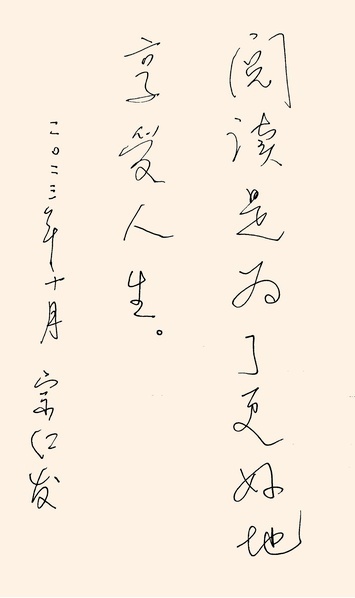 阅读是为了更好地
享受人生。
二〇二三年十月 宗仁发